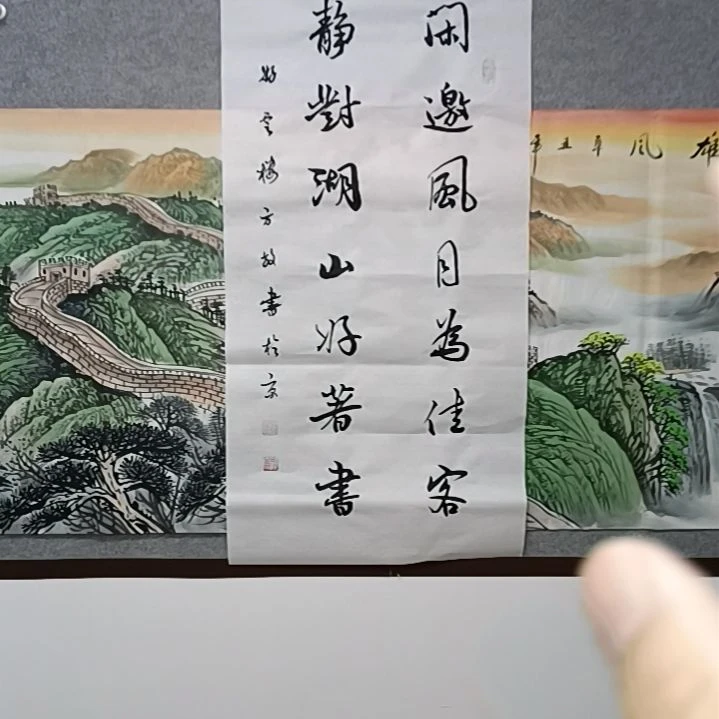 閑邀風月為佳客
靜對湖山好著書
方放書於京
雄
風
辛丑年